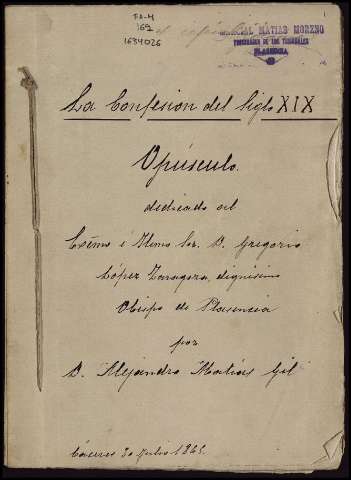 FA-M
169
1684026
MATIAS MORENO
PROCURADOR DE LOS TRIBUNALES
PLASENCIA
La Confesion del Siglo XIX
Opúsculo
dedicado al
Excmo é Ilmo Sor. D. Gregorio
López Zaragoza, dignísimo
Obispo de Plasencia
por
D. Alejandro Matías Gil
Cáceres 30 Julio 1865.